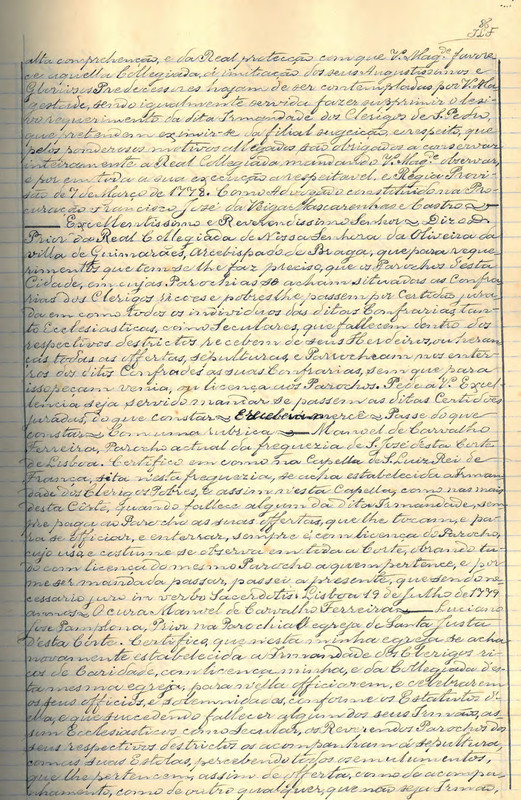 alta comprehenção, e da Real protecção com que V. Mag.de favore
ce aquella Collegiada, á imitação dos seus Augustissimos e
Gloriosos Predecessores hajam de ser contempladas por V. Ma
gestade, sendo igualmente servida fazer supprimir o
requerimento da dita Irmandade dos Clerigos de S. Pedro,
que pretendem eximir-se da filial sugeição, e respeito, que
pelos ponderosos motivos allegados são obrigados a conservar
inteiramente a Real Collegiada mandando V. Mag.e observar,
e por em toda a sua execução a respeitavel e Regia Provi
são de 7 de Março de 1778. Como Advogado constituido na Pro
curação Francisco José da Veiga Mascarenhas e Castro
Excellentissimo e Reverendissimo Senhor Diz o D.
Prior da Real Collegiada de Nossa Senhora da Oliveira da
villa de Guimarães, Arcebispado de Braga, que para reque
rimentos que tem se lhe faz preciso, que os Parochos desta
Cidade, em cujas Parochias se acham situadas as Confra
rias dos Clerigos ricos e pobres lhe passem por Certidão jura
da em como todos os individuos das ditas Confrarias tan
to Ecclesiasticos, como Seculares, que fallecem dentro dos
respectivos destrictos recebem de seus Herdeiros, ou heran
ças todas as offertas, sepulturas, e Parocheam nos enter
ros dos ditos Confrades as suas Confrarias, sem que para
isso peçam venia, ou licença aos Parochos. P. de a V. Excel
lencia seja servido mandar se passem as ditas Certidões
juradas, do que constar E receberá mercê Passe do que
constar Com uma rubrica Manoel de Carvalho
Ferreira, Parocho actual da freguezia de S. José desta Corte
de Lisboa. Certifico em como na Capella de S. Luiz Rei de
França, sita n'esta freguezia, se acha estabelecida a Irman
dade dos Clerigos Pobres, e assim n'esta Capella, como nas mais
desta Corte, quando fallece algum da dita Irmandade, sem
pre paga ao Parocho as suas offertas, que lhe tocam, e pa
ra se officiar, e enterrar, sempre é com licença do Parocho,
cujo uso, e costume se observa em toda a Corte, obrando tu
do com licença do mesmo Parocho a quem pertence, e por
me ser mandada passar, passei a presente, que sendo ne
cessario juro in verbo Sacerdotis. Lisboa 19 de Julho de 1779
annos O cura Manoel de Carvalho Ferreira Luciano
José Pamplona, Prior na Parochial egreja de Santa Justa
d'esta Corte. Certifico, que nesta minha egreja se acha
novamente estabelecida a Irmandade dos Clerigos ri
cos de Caridade, com licença minha, e da Collegiada des
ta mesma egreja, para n'ella officiarem, e celebrarem
os seus officios, e solemnidades, conforme os Estatutos d'
ella, e que sucedendo fallecer algum dos seus Irmãos, as
sim Ecclesiasticos como Secular, os Reverendos Parochos dos
seus respectivos destrictos os acompanham á sepultura,
com as suas Estolas, percebendo todos os emulumentos,
que lhe pertencem, assim de offerta, como de acompa
nhamento, como de outro qualquer, que não seja Irmão,